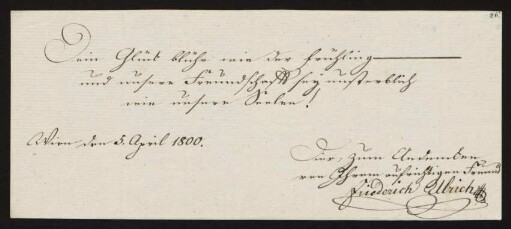 26.
Dein Glük blühe wie der Frühling
und unsere Freundschafft sey unsterblich
wie unsere Seelen!
Wien den 5. April 1800.
zum Andenken
von Ihrem aufrichtigen Freund
Friederich Ulrich